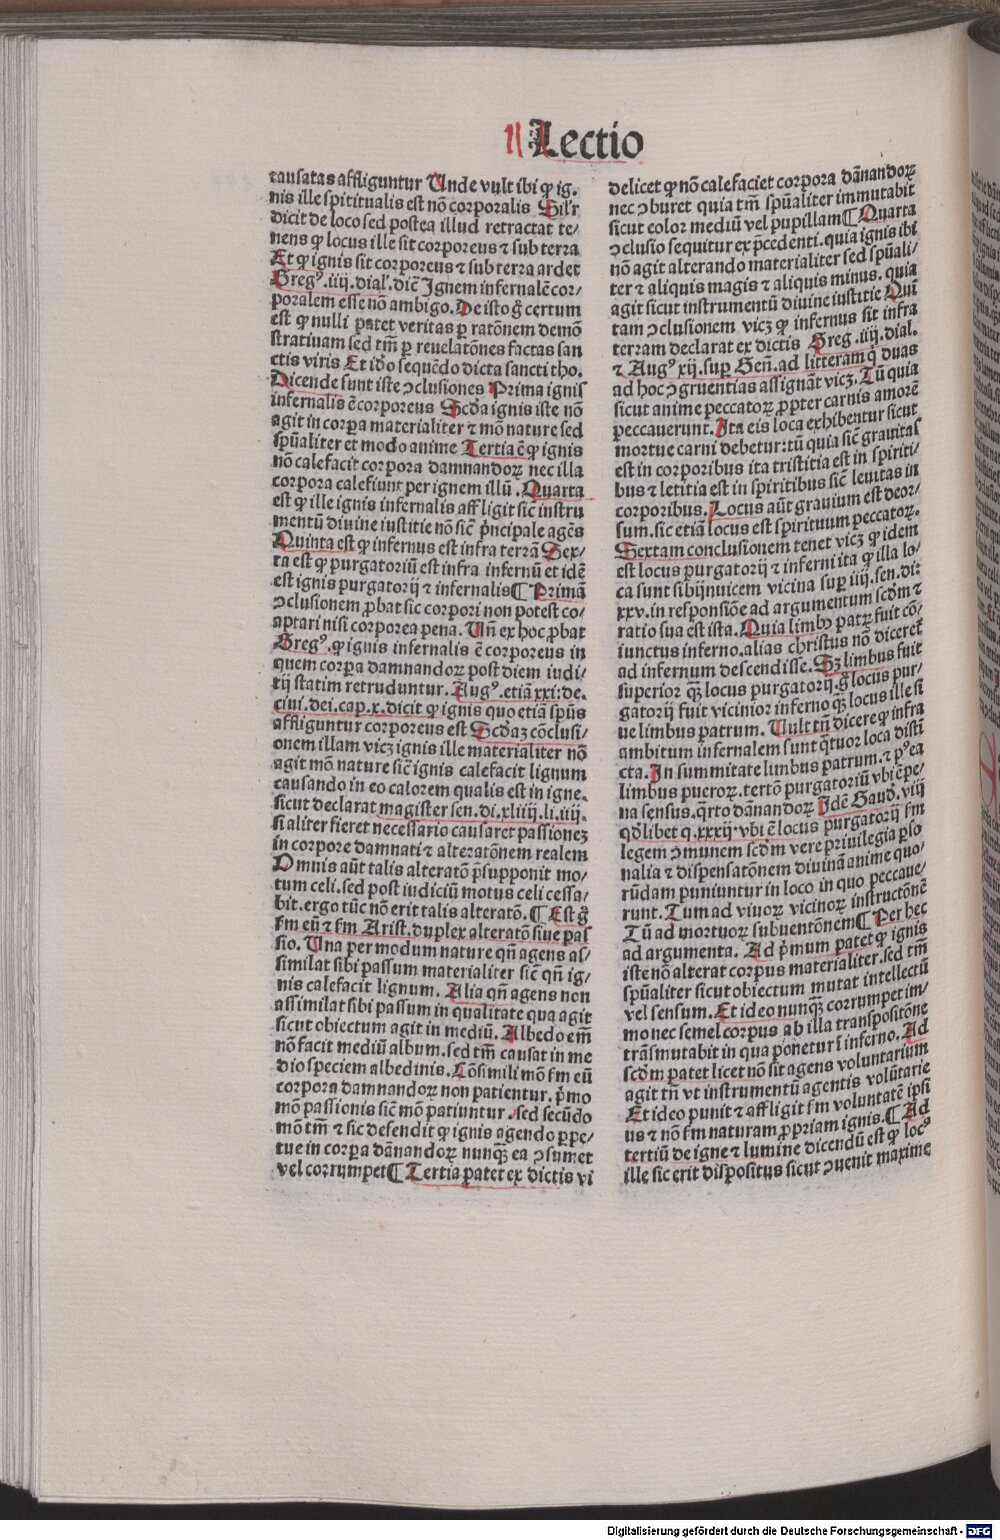 Lectio
causatas affliguntur Unde vult ibi ꝙ ig-
nis ille spiritualis est nō corporalis Sil'r
dicit de loco sed postea illud retractat te/
nens ꝙ locus ille sit corporeus ⁊ sub terra
Et ꝙ ignis sit corporeus ⁊ sub terra ardet
Gregꝰ.iiij.dial'.dic̄ Ignem infernalē cor/
poralem esse nō ambigo. De isto ḡ certum
est ꝙ nulli patet veritas ꝑ ratōnem demō
strativam sed tm̄ ꝑ reuelatōnes factas san
ctis viris Et iđo sequēdo dicta sancti tho.
Dicende sunt iste ↄclusiones Prima ignis
infernalis ē corporeus Scđa ignis iste nō
agit in corꝑa materialiter ⁊ mō nature sed
sp̄ualiter et modo anime Tertia ē ꝙ ignis
nō calefacit corpora damnandoꝝ nec illa
corpora calefiunt per ignem illū. Quarta
est ꝙ ille ignis infernalis affligit sic̄ instru
mentū divine iustitie nō sic̄ p̄ncipale agēs
Quinta est ꝙ infernus est infra terrā Sex/
ta est ꝙ purgatoriū est infra infernū et idē
est ignis purgatorij ⁊ infernalis ¶ Primā
ↄclusionem ꝓbat sic corpori non potest co/
aptari nisi corporea pena. Vn̄ ex hoc ꝓbat
Gregꝰ. ꝙ ignis infernalis ē corporeus in
quem corꝑa damnandoꝝ post diem iudi/
cij statim retruduntur. Augꝰ. etiā xxi: de.
ciui. dei. cap. x. dicit ꝙ ignis quo etiā spūs
affliguntur corporeus est Scđaꝫ cōclusi/
onem illam vicꝫ ignis ille materialiter nō
agit mō nature sic̄ ignis calefacit lignum
causando in eo calorem qualis est in igne.
sicut declarat magister sen. di. xliiij. li. iiij.
si aliter fieret necessario causaret passioneꝫ
in corpore damnati ⁊ alteratōnem realem
Omnis aūt talis alteratō p̄supponit mo/
tum celi. sed post iudiciū motus celi cessa/
bit. ergo tūc nō erit talis alteratō. ¶ Est ḡ
ẜm eū ⁊ ẜm Arist. duplex alteratō siue pas
sio. Una per modum nature qn̄ agens as/
similat sibi passum materialiter sic̄ qn̄ ig/
nis calefacit lignum. Alia qn̄ agens non
assimilat sibi passum in qualitate qua agit
sicut obiectum agit in mediū. Albedo em̄
nō facit mediū album. sed tm̄ causat in me
dio speciem albedinis. Cōsimili mō ẜm eū
corpora damnandoꝝ non patientur. p̄mo
mō passionis sic̄ mō patiuntur. sed secūdo
mō tm̄ ⁊ sic defendit ꝙ ignis agendo ꝑpe/
tue in corꝑa dānandoꝝ nunꝙ̄ ea ↄsumet
vel corrumpet ¶ Tertia patet ex dictis vi
delicet ꝙ nō calefaciet corpora dānandoꝝ
nec ↄburet quia tm̄ sp̄ualiter immutabit
sicut color mediū vel pupillam ¶ Quarta
ↄclusio sequitur ex p̄cedenti. quia ignis ibi
nō agit alterando materialiter sed sp̄uali/
ter ⁊ aliquis magis ⁊ aliquis minus. quia
agit sicut instrumentū divine iustitie Quī
tam ↄclusionem vicꝫ ꝙ infernus sit infra
terram declarat ex dictis Greg. iiij. dial.
⁊ Augꝰ xij. suꝑ Gen̄. ad litteram q̇ duas
ad hoc ↄgruentias assignāt vicꝫ. Tū quia
sicut anime peccatoꝝ ꝓpter carnis amorē
peccauerunt. Ita eis loca exhibentur sicut
mortue carni debetur: tū quia sic̄ grauitas
est in corporibus ita tristitia est in spiriti/
bus ⁊ letitia est in spiritibus sic̄ leuitas in
corporibus. Locus aūt grauium est deor/
sum. sic etiā locus est spirituum peccatoꝝ.
Sextam conclusionem tenet vicꝫ ꝙ idem
est locus purgatorij ⁊ inferni ita ꝙ illa lo/
ca sunt sibijnuicem vicina suꝑ iiij. sen. di:
xxv. in responsiōe ad argumentum scđm ⁊
ratio sua est ista. Quia limbꝰ patꝝ fuit cō/
iunctus inferno. alias christus nō diceret̄
ad infernum descendisse. Sꝫ limbus fuit
superior ꝙ̄ locus purgatorij. ḡ locus pur/
gatorij fuit vicinior inferno ꝙ̄ locus ille si
ue limbus patrum. Vult tn̄ dicere ꝙ infra
ambitum infernalem sunt q̄tuor loca disti
cta. In summitate limbus patrum. ⁊ pꝰ ea
limbus pueroꝝ. tertō purgatoriū vbi ē pe/
na sensus. q̄rto dānandoꝝ Idē Gaud̄. viij
qđlibet q. xxxij. vbi ē locus purgatorij ẜm
legem ↄmunem scđm vere priuilegia ꝑso
nalia ⁊ dispensatōnem diuinā anime quo/
rūdam puniuntur in loco in quo peccaue/
runt. Tum ad viuoꝝ vicinoꝝ instructōnē
Tū ad mortuoꝝ subuentōnem ¶ Per hec
ad argumenta. Ad p̄mum patet ꝙ ignis
iste nō alterat corpus materialiter. sed tm̄
sp̄ualiter sicut obiectum mutat intellectū
vel sensum. Et ideo nunꝙ̄ corrumpet im/
mo nec semel corpus ab illa transpositōne
trāsmutabit in qua ponetur ī inferno. Ad
scđm patet licet nō sit agens voluntarium
agit tn̄ vt instrumentū agentis volūtarie
Et ideo punit ⁊ affligit ẜm voluntatē ipsi
us ⁊ nō ẜm naturam ꝓpriam ignis. ¶ Ad
tertiū de igne ⁊ lumine dicendū est ꝙ locꝰ
ille sic erit dispositus sicut ↄuenit maxime
Digitalisierung gefördert durch die Deutsche Forschungsgemeinschaft - DFG